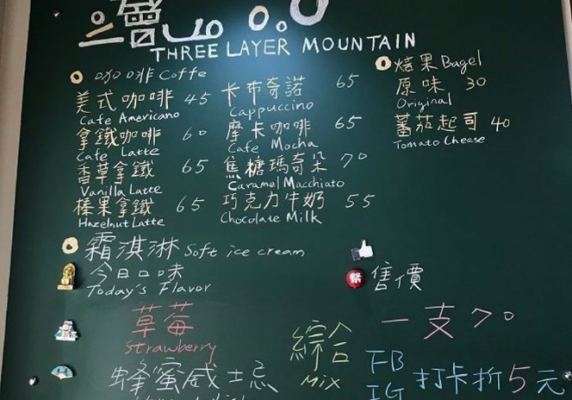 三層山
THREE LAYER MOUNTAIN
咖啡 Coffe
美式咖啡 45
Cafe Americano
拿鐵咖啡 60
Cafe Latte
香草拿鐵 65
Vanilla Latte
榛果拿鐵 65
Hazelnut Latte
卡布奇諾 65
Cappuccino
摩卡咖啡 65
Cafe Mocha
焦糖瑪奇朵 70
Caramel Macchiato
巧克力牛奶 55
Chocolate Milk
焙果 Bagel
原味 30
Original
蕃茄起司 40
Tomato Cheese
霜淇淋 Soft ice cream
今日口味
Today's Flavor
草莓
Strawberry
蜂蜜威士忌
綜合
Mix
售價
一支70
FB
IG
打卡折5元